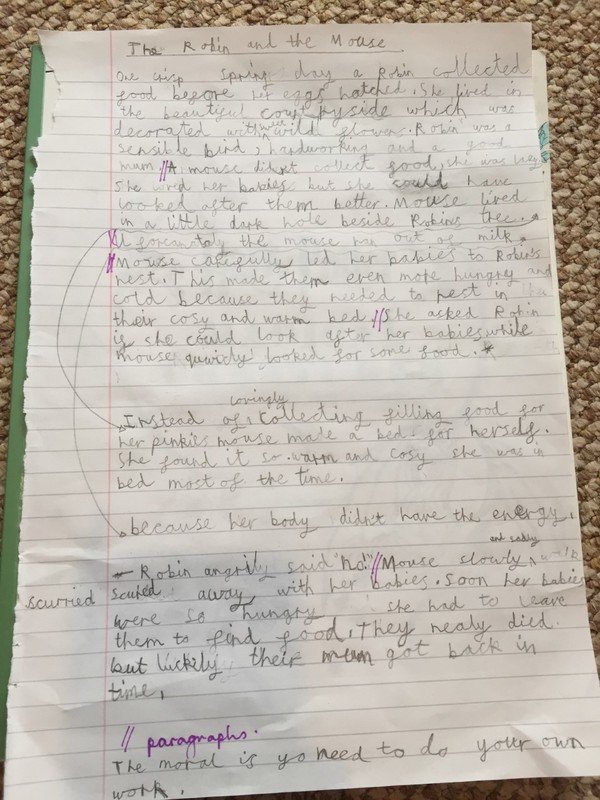 The Robin and the Mouse
One crisp spring day a Robin collected
food before her eggs hatched. She lived in
the beautiful countryside which was
decorated with wild flowers. Robin was a
sensible bird, hardworking and a good
mum. // A mouse didn't collect food, she was lazy.
She loved her babies but she could have
looked after them better. Mouse lived
in a little dark hole beside Robins tree.
the mouse ran out of milk
// Mouse carefully led her babies to Robin's
nest. This made them even more hungry and
cold because they needed to rest in
their cosy and warm bed. // She asked Robin
if she could look after her babies while
mouse looked for some food. *
lovingly
Instead of collecting filling food for
her pinkies mouse made a bed for herself.
She found it so warm and cosy she was in
bed most of the time.
because her body didn't have the energy.
and sadly
Robin angrily said "No!" // Mouse slowly
scurried away with her babies. Soon her babies
were so hungry she had to leave
them to find food. They nealy died
but luckily their mum got back in
time.
// paragraphs.
The moral is yo need to do your own
work.